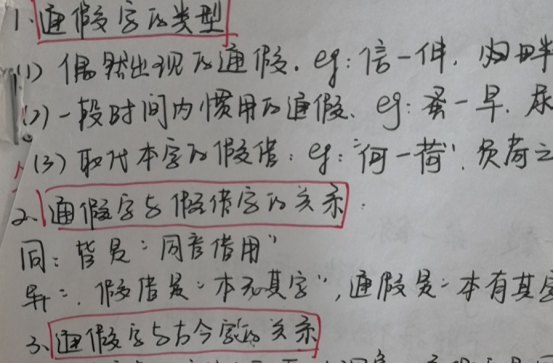 1. 通假字的类型
(1) 偶然出现的通假. eg: 信一伸.
(2) 一段时间内惯用的通假. eg: 蚤一早.
(3) 取代本字的假借: eg: "何一荷". 负荷之
2. 通假字与假借字的关系.
同: 皆是"同音借用"
异: 假借是"本无其字", 通假是"本有其字
3. 通假字与古今字的关系